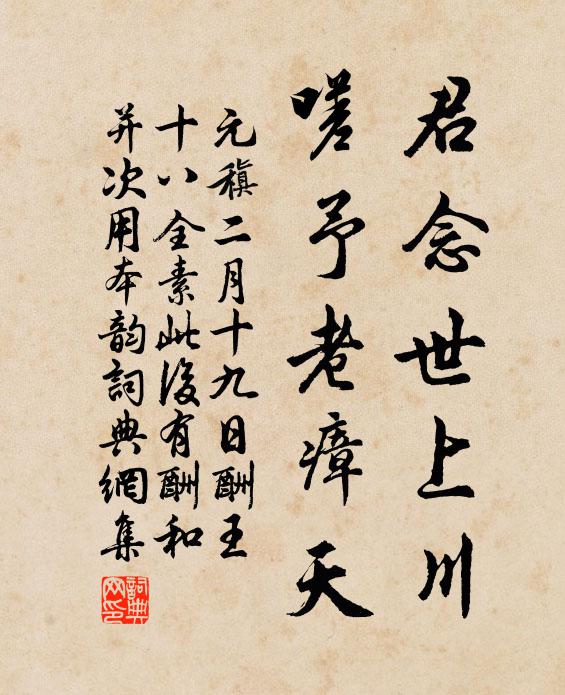 君念世上川
嗟予老瘴天
元稹二月十九日酬王
十八全素此後有酬和
并次用本韵詞典網集
詞典网印